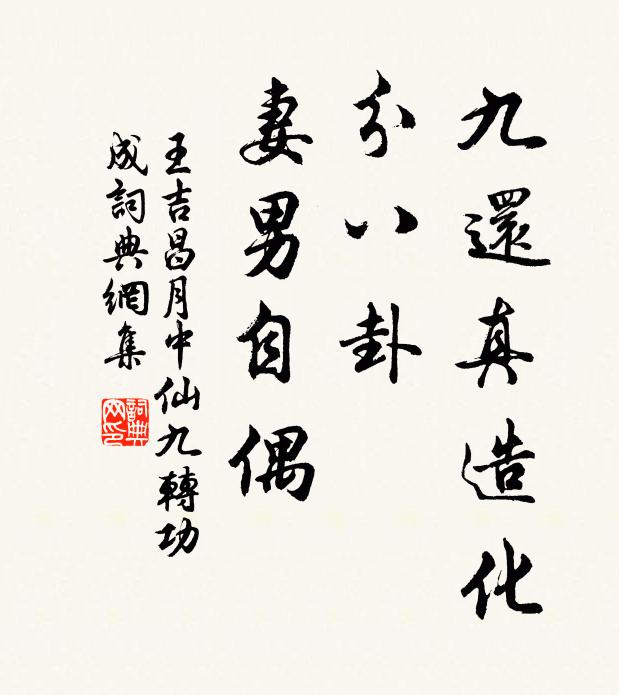 九還真造化
分八卦
妻男自偶
王吉昌月中仙九轉功
成詞典網集
詞典
网印